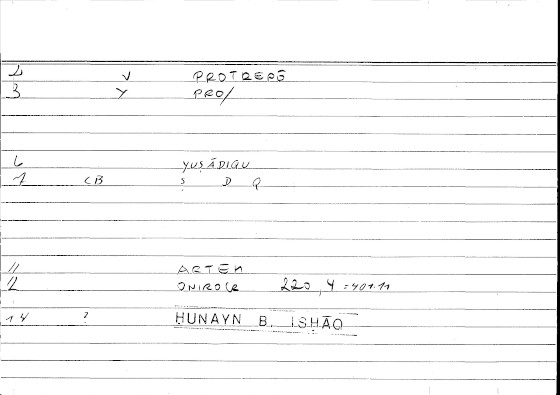 2 V PROTRERŌ
3 Y PRO/
6 YUṢĀDIQU
1 CB Ṣ D Q
11 ARTEM
12 ONIROCR 220, 4 = 401.11
14 ? HUNAYN B. ISḤĀQ